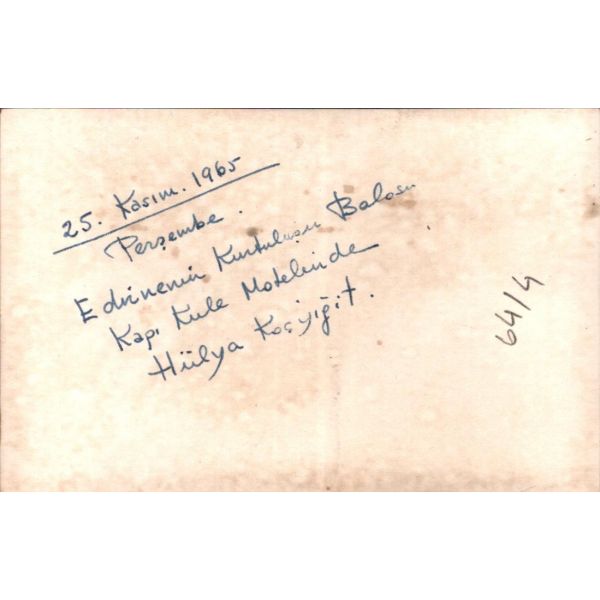 25. Kasım. 1965
Perşembe.
Edirnenin Kurtuluşu Balosu
Kapı Kule Motelinde
Hülya Koçyiğit.
64/4